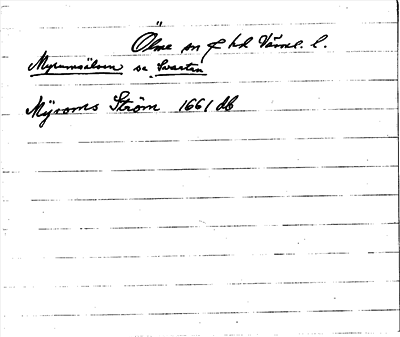 Ölme sn o hd Värml. l.
Myrumsälven se Svartån
Mÿroms Ström 1661 db